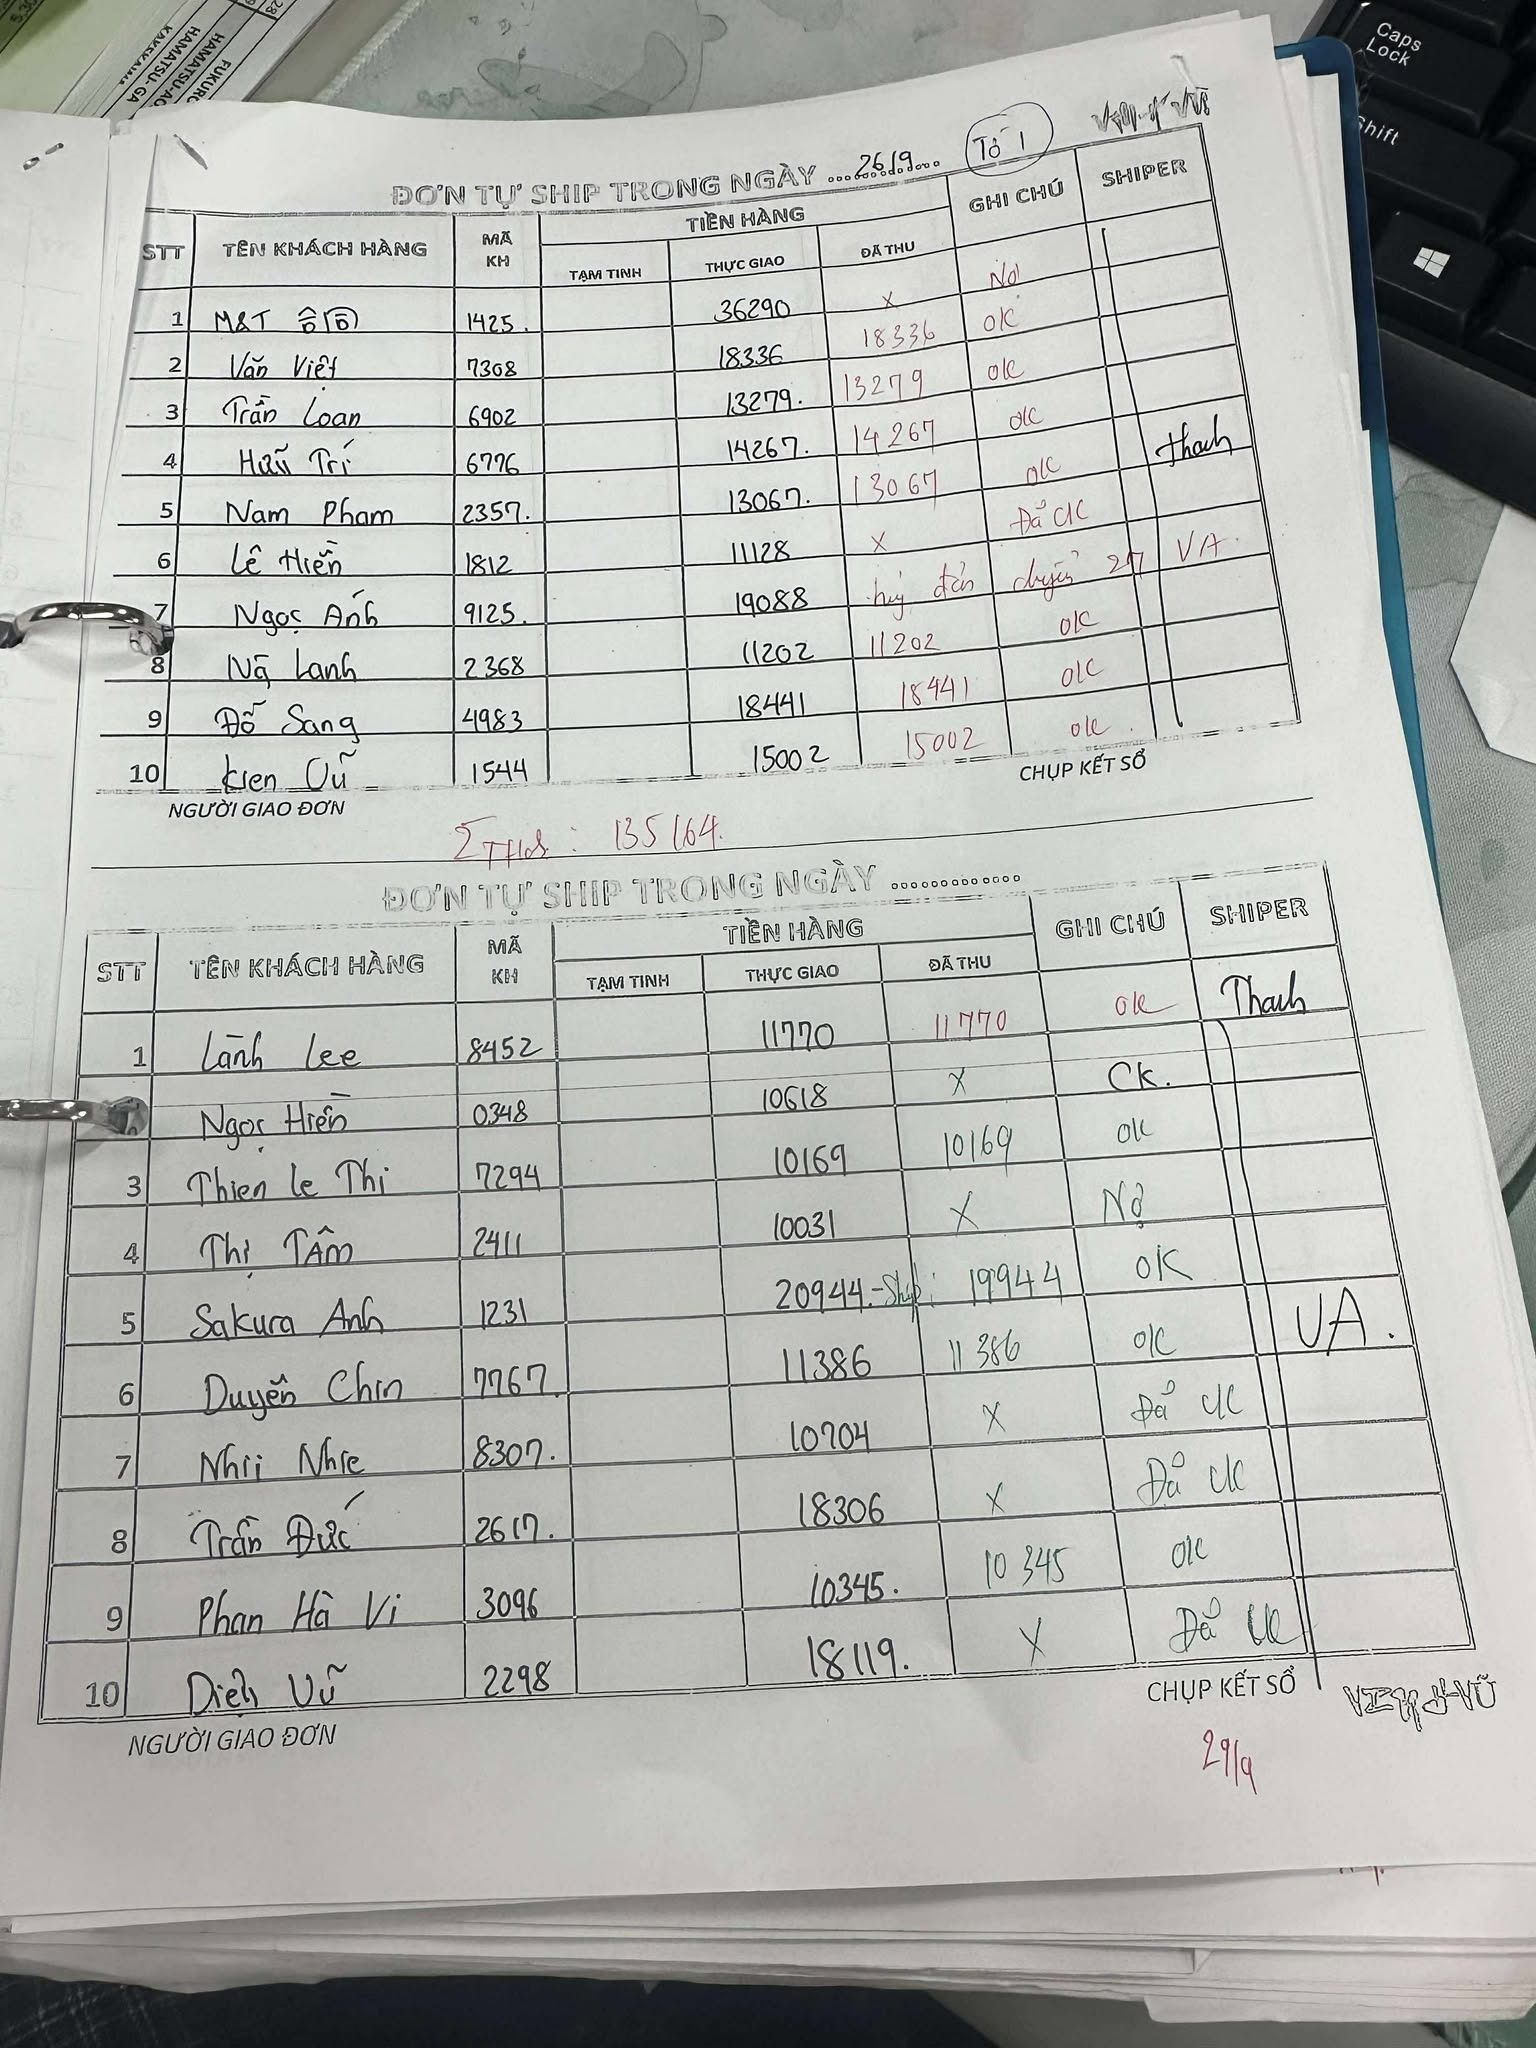 28
FUKURO
HAMATSU-AO
HAMATSU-GA
Caps Lock
Shift
ĐƠN TỰ SHIP TRONG NGÀY ...26/9... Tờ 1
STT TÊN KHÁCH HÀNG MÃ KH TIỀN HÀNG GHI CHÚ SHIPER
TẠM TINH THỰC GIAO ĐÃ THU
1 M&T 1425. 36290 x Nợ
2 Văn Việt 7308 18336 18336 ok
3 Trần Loan 6902 13279. 13279 ok
4 Hữu Trí 6776 14267. 14267 ok Thach
5 Nam Pham 2357. 13067. 13067 ok
6 Lê Hiền 1812 11128 x Đã CK VA.
7 Ngọc Ánh 9125. 19088 huỷ đơn chuyển 27
8 Nã Lanh 2368 11202 11202 ok
9 Đỗ Sang 4983 18441 18441 ok
10 Kien Vũ 1544 15002 15002 ok
NGƯỜI GIAO ĐƠN CHỤP KẾT SỔ
135164.
ĐƠN TỰ SHIP TRONG NGÀY .............
STT TÊN KHÁCH HÀNG MÃ KH TIỀN HÀNG GHI CHÚ SHIPER
TẠM TINH THỰC GIAO ĐÃ THU
1 Lành Lee 8452 11770 11770 ok Thach
Ngọc Hiền 0348 10618 x Ck.
3 Thien Le Thi 7294 10169 10169 ok
4 Thị Tâm 2411 10031 x Nợ
5 Sakura Anh 1231 20944.-Ship: 19944 OK
6 Duyên Chin 7767. 11386 11386 ok VA.
7 Nhii Nhie 8307. 10704 x Đã CK
8 Trần Đức 2617. 18306 x Đã CK
9 Phan Hà Vi 3096 10345. 10345 ok
10 Diệh Vũ 2298 18119. x Đã CK
NGƯỜI GIAO ĐƠN CHỤP KẾT SỔ
29/9